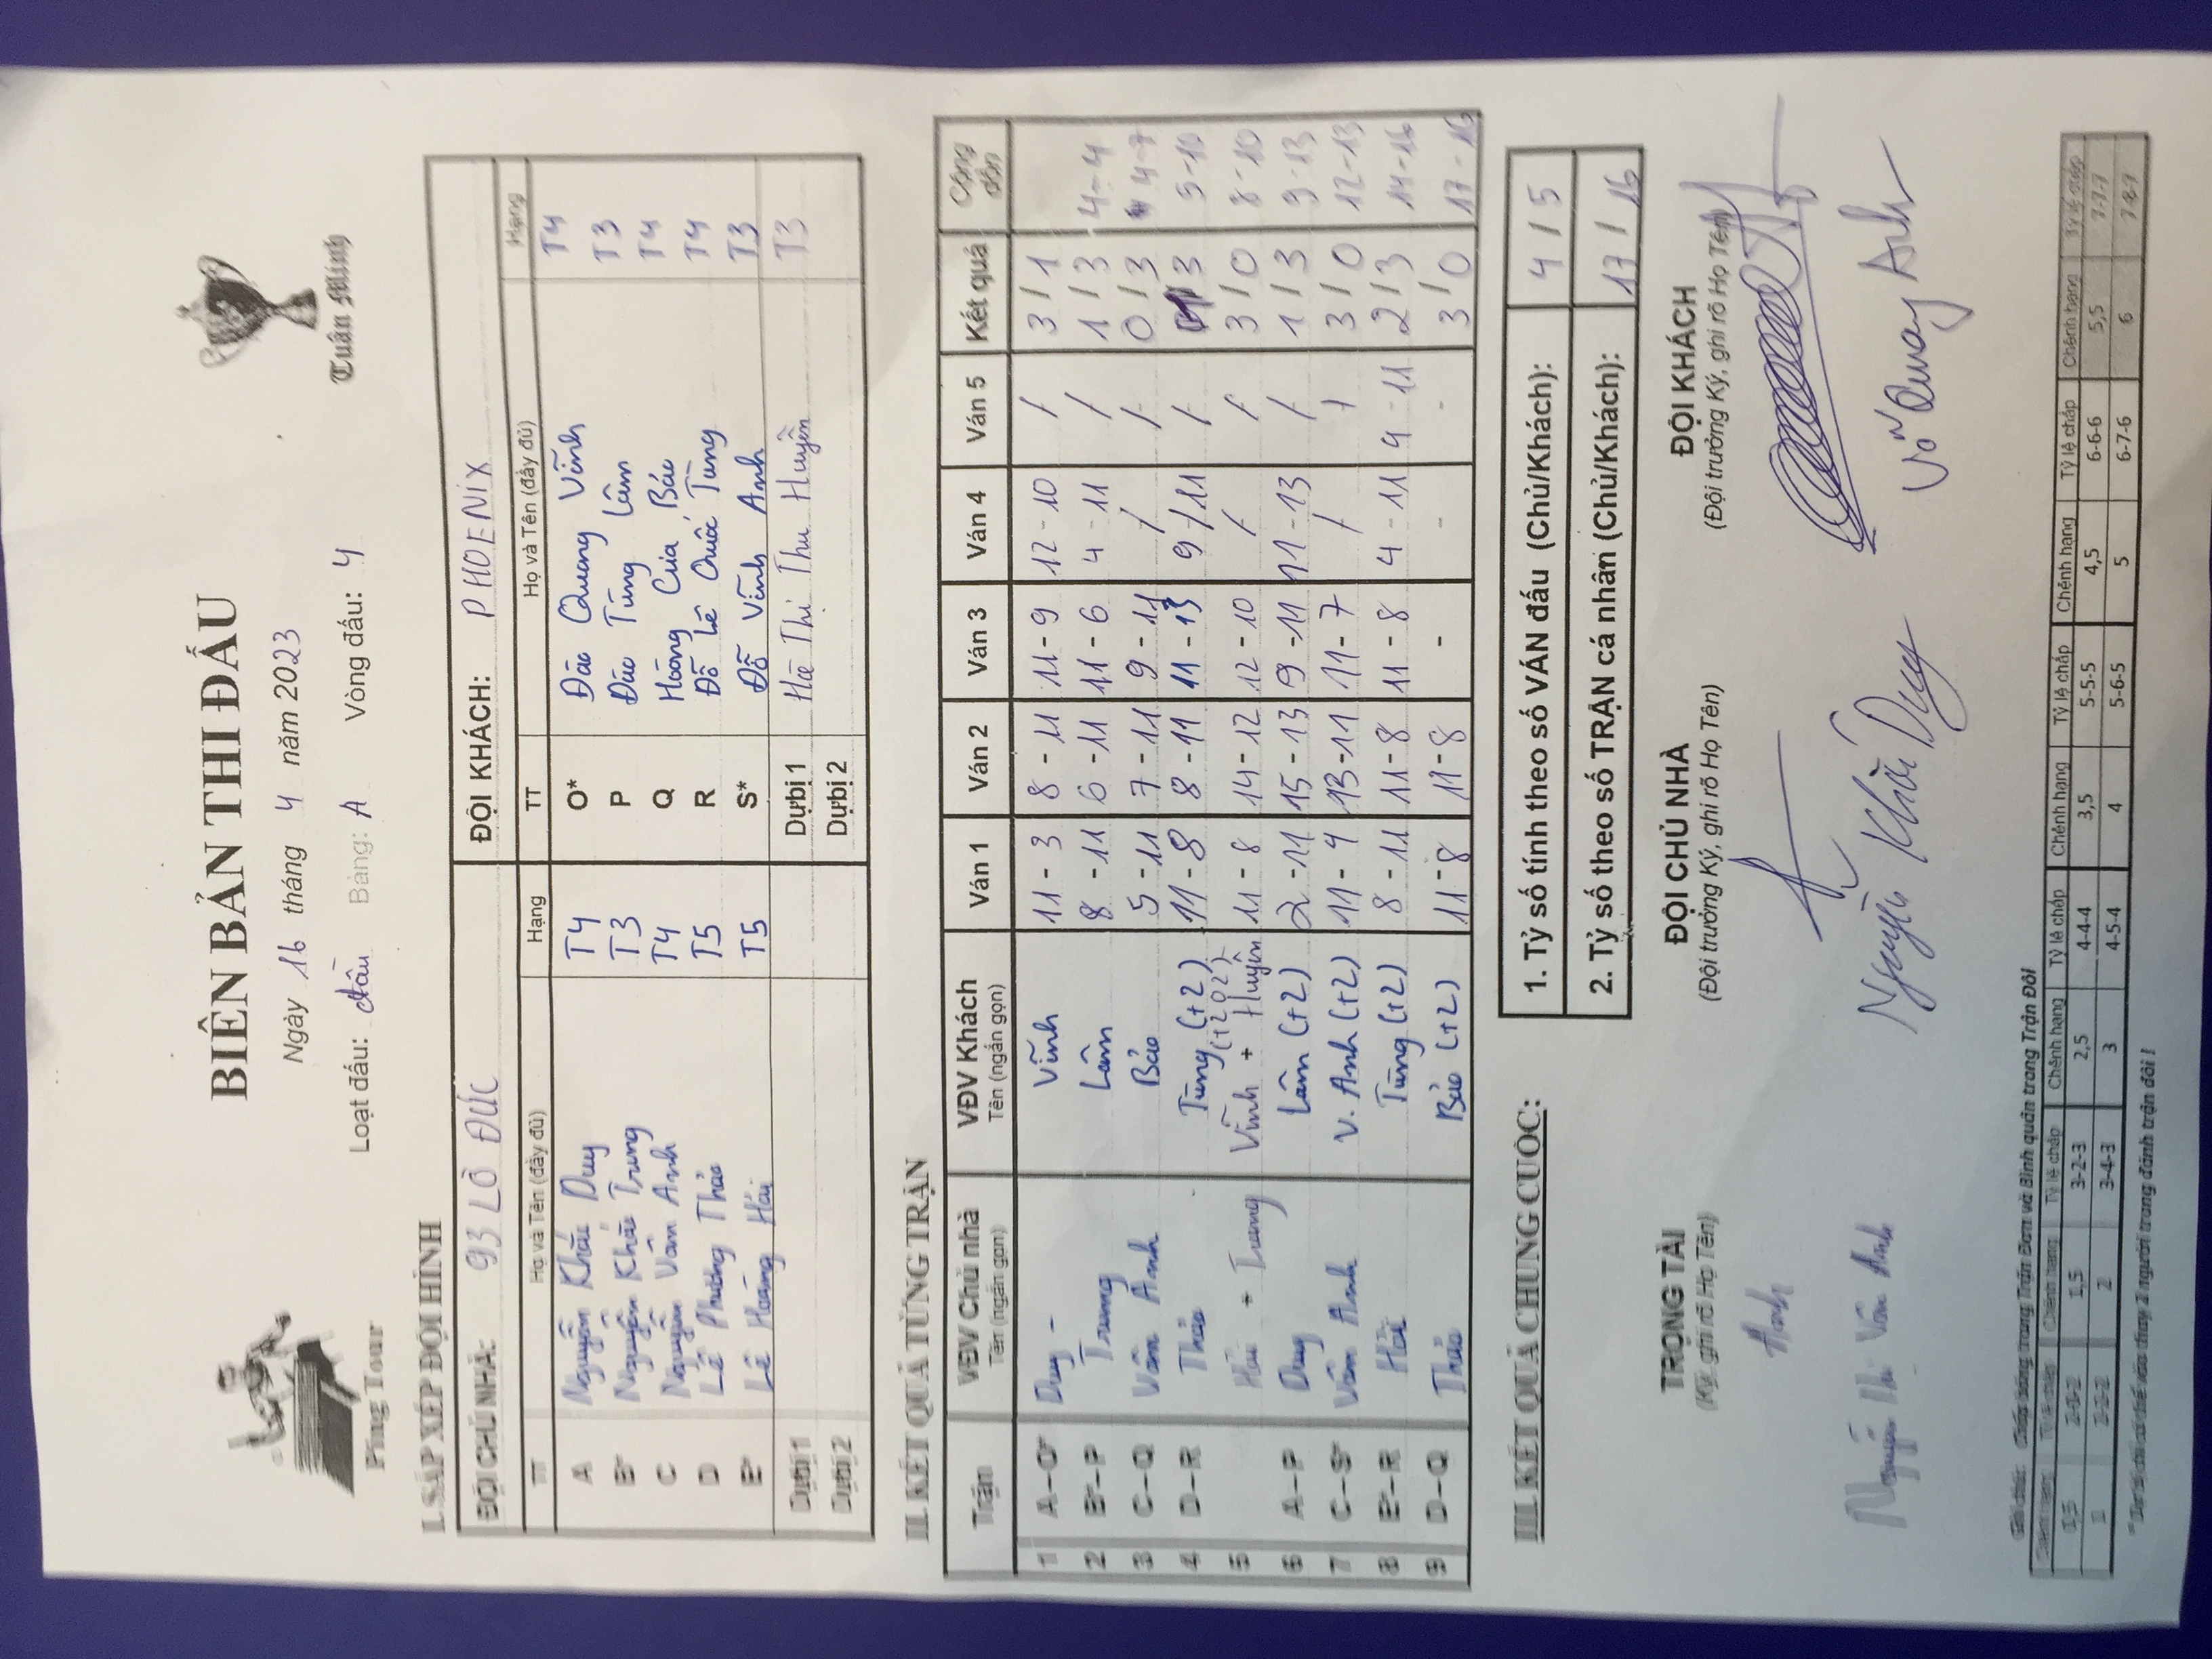 BIÊN BẢN THI ĐẤU
Ping Tour
Tuấn Minh
Ngày 16 tháng 4 năm 2023
Loạt đấu: đầu Bảng: A Vòng đấu: 4
I. SẮP XẾP ĐỘI HÌNH
ĐỘI CHỦ NHÀ: 93 LÒ ĐÚC ĐỘI KHÁCH: PHOENIX
TT Họ và Tên (đầy đủ) Hạng TT Họ và Tên (đầy đủ) Hạng
A Nguyễn Khắc Duy T4 O* Đào Quang Vĩnh T4
B* Nguyễn Khắc Trung T3 P Đào Tùng Lâm T3
C Nguyễn Vân Anh T4 Q Hoàng Gia Bảo T4
D Lê Phương Thảo T5 R Đỗ Lê Quốc Tùng T4
E* Lê Hoàng Hải T5 S* Đỗ Vĩnh Anh T3
Dự bị 1 Dự bị 1 Hà Thị Thu Huyền T3
Dự bị 2 Dự bị 2
II. KẾT QUẢ TỪNG TRẬN
Trận VĐV Chủ nhà Tên (ngắn gọn) VĐV Khách Tên (ngắn gọn) Ván 1 Ván 2 Ván 3 Ván 4 Ván 5 Kết quả Cộng dồn
1 A-O* Duy - Vĩnh 11 - 3 8 - 11 11 - 9 12 - 10 / 3 / 1
2 B*-P Trung Lâm 8 - 11 6 - 11 11 - 6 4 - 11 / 1 / 3 4-4
3 C-Q Vân Anh Bảo 5 - 11 7 - 11 9 - 11 / / 0 / 3 4-7
4 D-R Thảo Tùng (+2) 11 - 8 8 - 11 11 - 13 9 / 11 / / 3 5-10
5 Hải + Trung Vĩnh + Huyền (+202) 11 - 8 14 - 12 12 - 10 / / 3 / 0 8-10
6 A-P Duy Lâm (+2) 2 - 11 15 - 13 9 - 11 11 - 13 / 1 / 3 9-13
7 C-S* Vân Anh V. Anh (+2) 11 - 9 13 - 11 11 - 7 / / 3 / 0 12-13
8 E*-R Hải Tùng (+2) 8 - 11 11 - 8 11 - 8 4 - 11 9 - 11 2 / 3 14-16
9 D-Q Thảo Bảo (+2) 11 - 8 11 - 8 - - - 3 / 0 17-16
III. KẾT QUẢ CHUNG CUỘC:
1. Tỷ số tính theo số VÁN đấu (Chủ/Khách): 4 / 5
2. Tỷ số theo số TRẬN cá nhân (Chủ/Khách): 17 / 16
TRỌNG TÀI ĐỘI CHỦ NHÀ ĐỘI KHÁCH
(Ký, ghi rõ Họ Tên) (Đội trưởng Ký, ghi rõ Họ Tên) (Đội trưởng Ký, ghi rõ Họ Tên)
Anh
Nguyễn Thị Vân Anh Nguyễn Khắc Duy Võ Quang Anh
Chấp bóng trong Trận Đơn và Bình quân trong Trận Đôi
Chênh hạng Tỷ lệ chấp Chênh hạng Tỷ lệ chấp Chênh hạng Tỷ lệ chấp Chênh hạng Tỷ lệ chấp Chênh hạng Tỷ lệ chấp Chênh hạng Tỷ lệ chấp
0,5 1,5 3-2-3 2,5 4-4-4 3,5 5-5-5 4,5 6-6-6 5,5 7-7-7
1 2-2-2 2 3-4-3 3 4-5-4 4 5-6-5 5 6-7-6 6 7-8-7